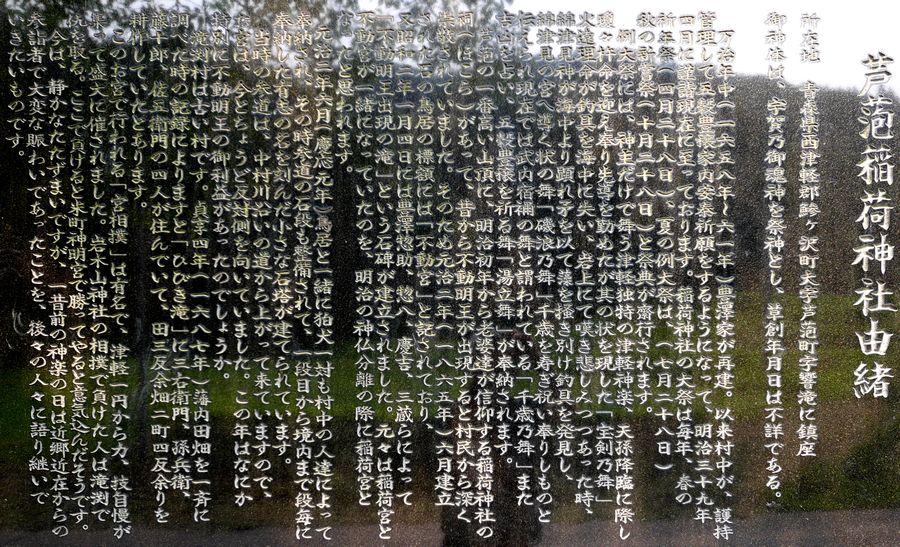 芦萢稲荷神社由緒
所在地　青森県西津軽郡鰺ヶ沢町大字芦萢町字響滝に鎮座
御神体は、宇賀乃御魂神を祭神とし、草創年月日は不詳である。
万治年中(一六五八年~六一年)豊澤家が再建。以来村中が、護持
管理して五穀豊穣家内安泰祈願をするようになって、明治三十九年
四月に譲謂現在に至っております。稲荷神社の大祭は毎年、春の
祈年祭(四月二十八日)、夏の例大祭は、(七月二十八日)
秋の新嘗祭(十月二十八日)と祭典が齋行されます。
例大祭には、神主だけで舞う津軽独特の津軽神楽、天孫降臨に際し
瓊々杵命を迎え奉り先導を勤めたが其の状を現した「宝剣乃舞」
火遠理命が釣具を海中に失い、岩上にて嘆き悲しみつつあった時、
綿津見神が海中より顕れ矛を以て藻を掻き別け釣具を発見し、
綿津見の宮へ進む状の舞「磯浪乃舞」千歳を寿ぎ祝い奉りしものと
伝えられ現在では武内宿禰の舞と謂われている「千歳乃舞」また
吉凶を占い、五穀豊穣を祈る舞「湯立舞」が奉納されます。
芦萢の一番高い山頂に、明治初年から老婆達が信仰する稲荷神社の
祠(ほこら)があって、昔から不動明王が出現すると村民から深く
崇敬されていました。そのため元治二年(一八六五年)六月建立
された石の鳥居の標額には「不動宮」と記されており、
又昭和二年一月四日には豊澤惣助、惣八、慶吉、三蔵らによって
「不動明王出現の滝」という石碑が建立されました。元々は稲荷宮と
不動宮が一緒になっていたのを、明治の神仏分離の際に稲荷宮と
なったと思われます。
元治二年六月(慶応元年)鳥居と一緒に狛犬一対も村中の人達によって
奉納され、その時参道の石段も整備されて、一段目から境内まで段毎に
奉納した有志の名を刻んだ小さな石塔が建てられました。
当時の参道は、中村川沿いの道から上がって来ていますので、
お宮は、今とちょうど反対側を向いていました。この年はなにか
特別に不動明王の御利益があったのでしょうか。
滝渕村は古い村です。貞享四年(一六八七年)藩内田畑を一斉に
調べた時の記録によりますと「ひびき滝」に三右衛門、孫兵衛、
藤十郎、佐五衛門の四人が住んでいて、田三反余畑二町四反余りを
耕作していたとあります。
このお宮で行われる「宮相撲」は有名で、津軽一円から力、技自慢が
集って盛大に催されました。岩木山神社の相撲で負けた人は滝渕で
仇を取る。ここで負けると来町神明宮で勝ってやると意気込んだそうです。
今は、静かなたたずまいですが、一昔前の神楽の日は近郷近在からの
参詣者で大変な賑わいであったことを、後々の人々に語り継いで
いきたいものです。